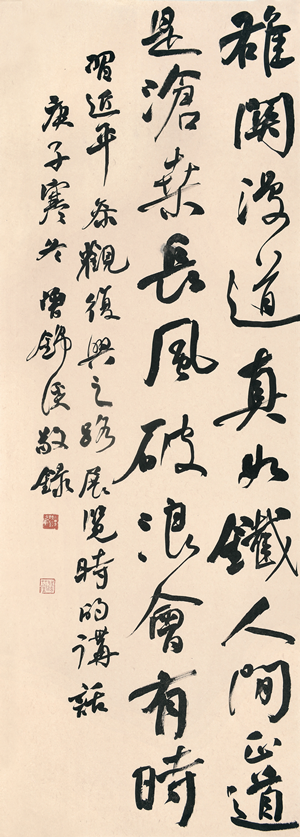 雄關漫道真如鐵人間正道
是滄桑長風破浪會有時
習近平參觀復興之路展覽時的講話
庚子寒冬曾錦溪敬錄